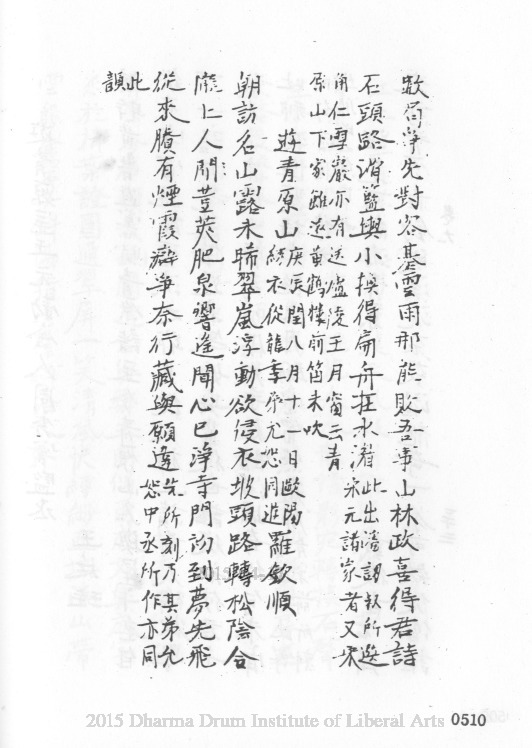 數局爭先對客碁雲雨那能敗吾事山林政喜得君詩
石頭路滑籃輿小換得扁舟在水湄此出潘訒叔所選
宋元諸家者又宋
仁雪巖亦有送盧陵王月窗云青
原山下家雖遠黃鶴樓前笛未吹
遊青原山庚辰閏八月十一日歐陽
綉衣從龍季弟允恕同遊羅欽順
朝訪名山露未晞翠嵐浮動欲侵衣坡頭路轉松陰合
隴上人閒荳莢肥泉響遙聞心已淨寺門初到夢先飛
從來賸有煙霞癖爭奈行藏與願違先所刻乃其弟允
恕中丞所作亦同
此
韻
2015 Dharma Drum Institute of Liberal Arts 0510